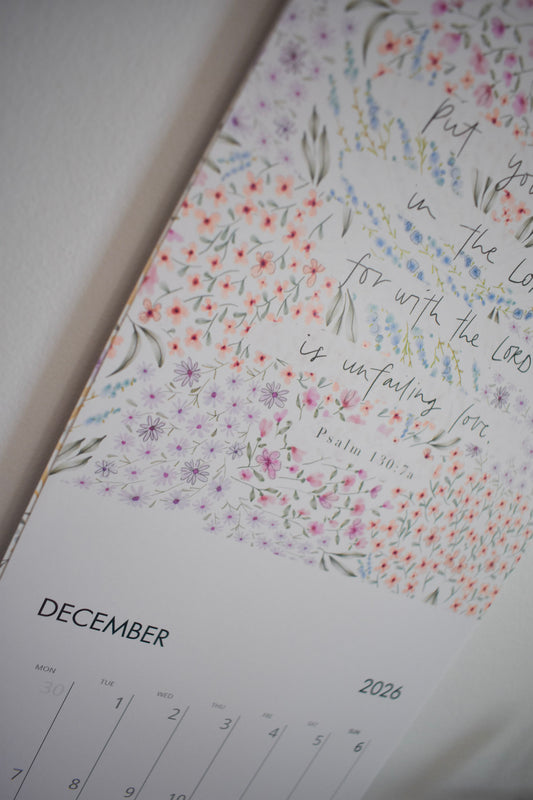 Put
in the
for with the LORD
is unfailing love.
Psalm 130:7a
DECEMBER
2026
MON TUE WED THU FRI SAT SUN
30 1 2 3 4 5 6
7 8 9 10